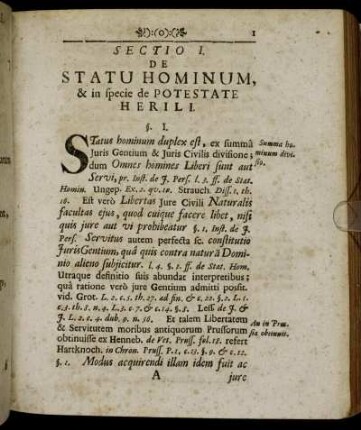 1
SECTIO I.
DE
STATU HOMINUM,
& in specie de POTESTATE
HERILI.
§. I.
STatus hominum duplex est, ex summâ
Juris Gentium & Juris Civilis divisione;
dum Omnes homines Liberi sunt aut
Servi, pr. Inst. de J. Pers. l. 3. ff. de Stat.
Homin. Ungep. Ex. 2. qv. 10. Strauch. Diss. 2. th.
10. Est verò Libertas Jure Civili Naturalis
facultas ejus, quod cuique facere libet, nisi
quis jure aut vi prohibeatur §. 1. Inst. de J.
Pers. Servitus autem perfecta sc. constitutio
JurisGentium, quâ quis contra naturã Domi-
nio alieno subjicitur. l. 4. §. 1. ff. de Stat. Hom.
Utraque definitio suis abundat interpretibus;
quâ ratione verò jure Gentium admitti possit.
vid. Grot. L. 2. c. 5. th. 27. ad fin. & c. 22. §. 2. L. 1.
c. 3. th. 8. n. 4. L. 3. c. 7. & c. 14. §. 1. Less. de J. &
J. L. 2. c. 4. dub. 9. n. 56. Et talem Libertatem
& Servitutem moribus antiquorum Prussorum
obtinuisse ex Henneb. de Vet. Pruss. fol. 18. refert
Hartknoch. in Chron. Pruss. P. 1. c. 13. §. 9. & c. 12.
§. 1. Modus acquirendi illam idem fuit ac
A jure
Summa ho-
minum divi-
sio.
An in Prus-
sia obtinuit.